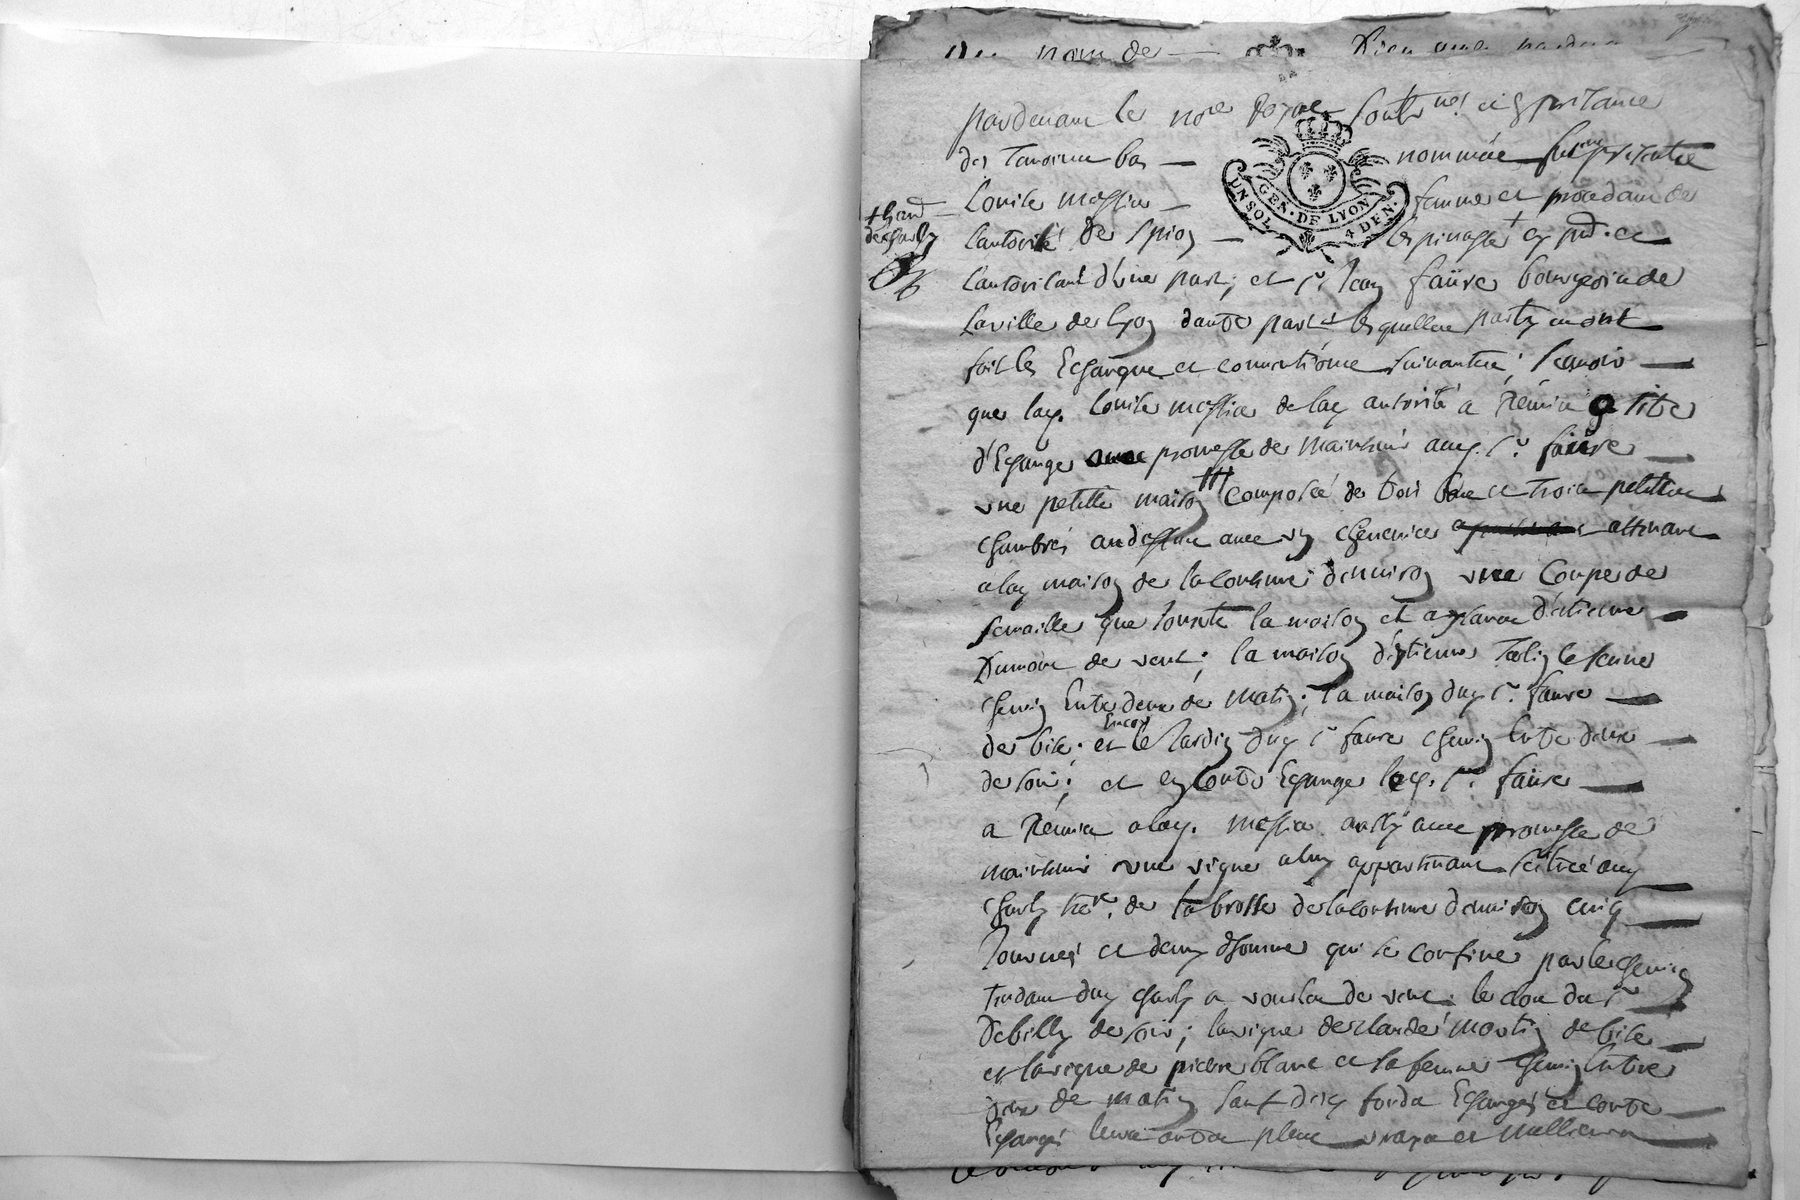 Au nom de Dieu
pardevant le no.re Royal soub.né et en presance
des tesmoins bas nommée fust presente
GEN. DE LYON
UN SOL 4 DEN.
Louise messia femme et procedant de
+ hant
de Charly
lautorité de spion lespinasse + cy pnt. et
lautorisant d'une part; et sr. Jean faüre bourgeois de
la ville de lyon dautre part lesquelles partyes ont
fait les Echange et conventions suivantes; scavoir
que lad. Louise messia de lad autorité a Remis a titre
d'Echange avec promesse de maintenir aud. sr. faüre
une petitte maison composée de trois bas et trois petittes
chambres audessus avec un chenevier attenant
a lad maison de la contenue denviron une coupe de
semaille que jouxte la maison et d'estienne
Dumont de vent; la maison d'estienne le jeune
chemin Entre deux de matin; la maison dud sr. faure
de bize; et Encor le Jardin dud sr faure chemin Entre deux
de soir; et en contre Echange led. sr. faüre
a Remis a lad. messia aussy avec promesse de
maintenir une vigne a luy appartenant scitüée aud
Charly terre. de la brosse de la contenue denviron cinq
Journés et demy dhomme qui se confine par le chemin
tendant dud Charly a vourles de vent; le clos du sr
Debilly de soir; la vigne de claude martin de bize
et la vigne de pierre blanc et sa femme chemin Entre
deux de matin sauf desd fonds Echangés et contre
Echangés leurs autres plus vrays et meilleurs